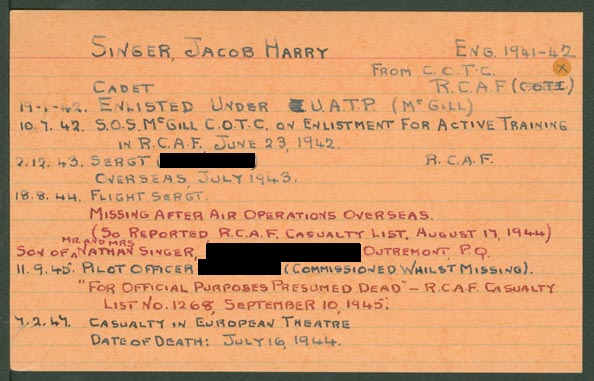 SINGER, JACOB HARRY ENG. 1941-42
FROM C.O.T.C. X
CADET R.C.A.F. (C.O.T.C.)
19-1-42. ENLISTED UNDER U.A.T.P. (McGILL)
10.7.42. S.O.S. McGILL C.O.T.C. ON ENLISTMENT FOR ACTIVE TRAINING
IN R.C.A.F. JUNE 23, 1942.
2.12.43. SERGT R.C.A.F.
OVERSEAS, JULY 1943.
18.8.44. FLIGHT SERGT.
MISSING AFTER AIR OPERATIONS OVERSEAS.
(SO REPORTED R.C.A.F. CASUALTY LIST, AUGUST 17, 1944)
SON OF MR. AND MRS NATHAN SINGER, OUTREMONT, P.Q.
11.9.45. PILOT OFFICER (COMMISSIONED WHILST MISSING).
"FOR OFFICIAL PURPOSES PRESUMED DEAD" - R.C.A.F. CASUALTY
LIST NO. 1268, SEPTEMBER 10, 1945.
7.2.47. CASUALTY IN EUROPEAN THEATRE
DATE OF DEATH: JULY 16, 1944.